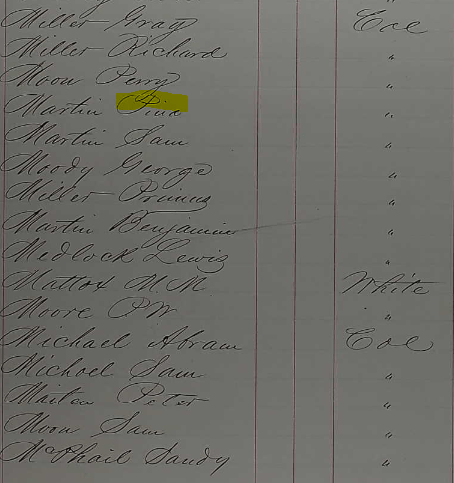 Miller Gray Col
Miller Richard "
Moon Perry "
Martin "
Martin Sam "
Moody George "
Miller Primus "
Martin Benjamin "
Medlock Lewis "
Mattox M. M. White
Moore P W "
Michael Abram Col
Michael Sam "
Peter "
Moon Sam "
McPhail Sandy "